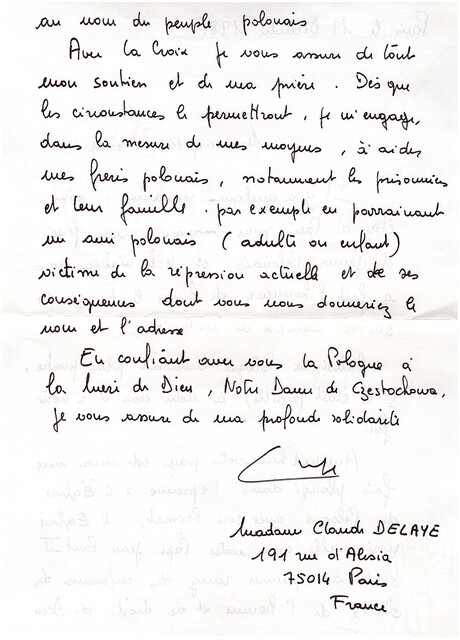 au nom du peuple polonais
Avec la Croix je vous assure de tout
mon soutien et de ma prière. Dès que
les circonstances le permettront, je m'engage,
dans la mesure de mes moyens, à aider
mes frères polonais, notamment les prisonniers
et leur famille. par exemple en parrainant
un ami polonais (adulte ou enfant)
victime de la répression actuelle et de ses
conséquences dont vous nous donneriez le
nom et l'adresse
En confiant avec vous la Pologne à
la mère de Dieu, Notre Dame de Czestochowa,
je vous assure de ma profonde solidarité
Madame Claude DELAYE
191 rue d'Alesia
75014 Paris
France